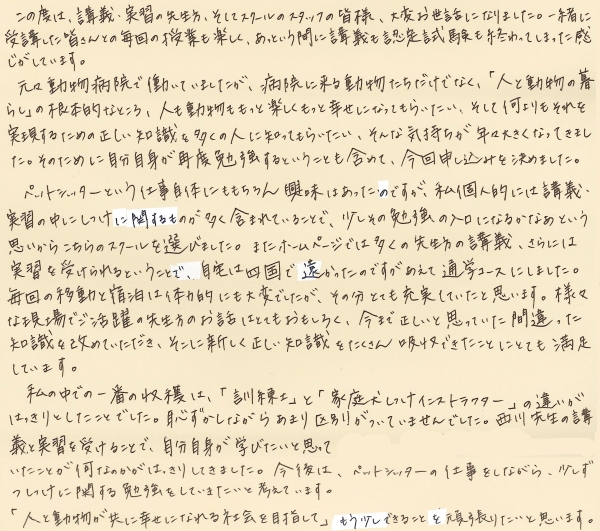 この度は、講義・実習の先生方、そしてスクールのスタッフの皆様、大変お世話になりました。一緒に
受講した皆さんとの毎回の授業も楽しく、あっという間に講義も認定試験も終わってしまった感
じがしています。
元々動物病院で働いていましたが、病院に来る動物たちだけでなく、「人と動物の暮
らし」の根本的なところ、人も動物ももっと楽しくもっと幸せになってもらいたい、そして何よりもそれを
実現するための正しい知識を多くの人に知ってもらいたい、そんな気持ちが年々大きくなってきまし
た。そのために自分自身が再度勉強するということも含めて、今回申し込みを決めました。
ペットシッターという仕事自体にももちろん興味はあったのですが、私個人的には講義・
実習の中にしつけに関するものが多く含まれていることで、少しその勉強の入口になるかなあという
思いからこちらのスクールを選びました。またホームページでは多くの先生方の講義、さらには
実習を受けられるということで、自宅は四国で遠かったのですがあえて通学コースにしました。
毎回の移動と宿泊は体力的にも大変でしたが、その分とても充実していたと思います。様々
な現場でご活躍の先生方のお話はとてもおもしろく、今まで正しいと思っていた間違った
知識を改めていただき、そこに新しく正しい知識をたくさん吸収できたことにとても満足
しています。
私の中での一番の収穫は、「訓練士」と「家庭犬しつけインストラクター」の違いが
はっきりとしたことでした。恥ずかしながらあまり区別がついていませんでした。西川先生の講
義と実習を受けることで、自分自身が学びたいと思って
いたことが何なのかがはっきりしてきました。今後は、ペットシッターの仕事をしながら、少しず
つしつけに関する勉強をしていきたいと考えています。
「人と動物が共に幸せになれる社会を目指して」もう少しできることを頑張りたいと思います。